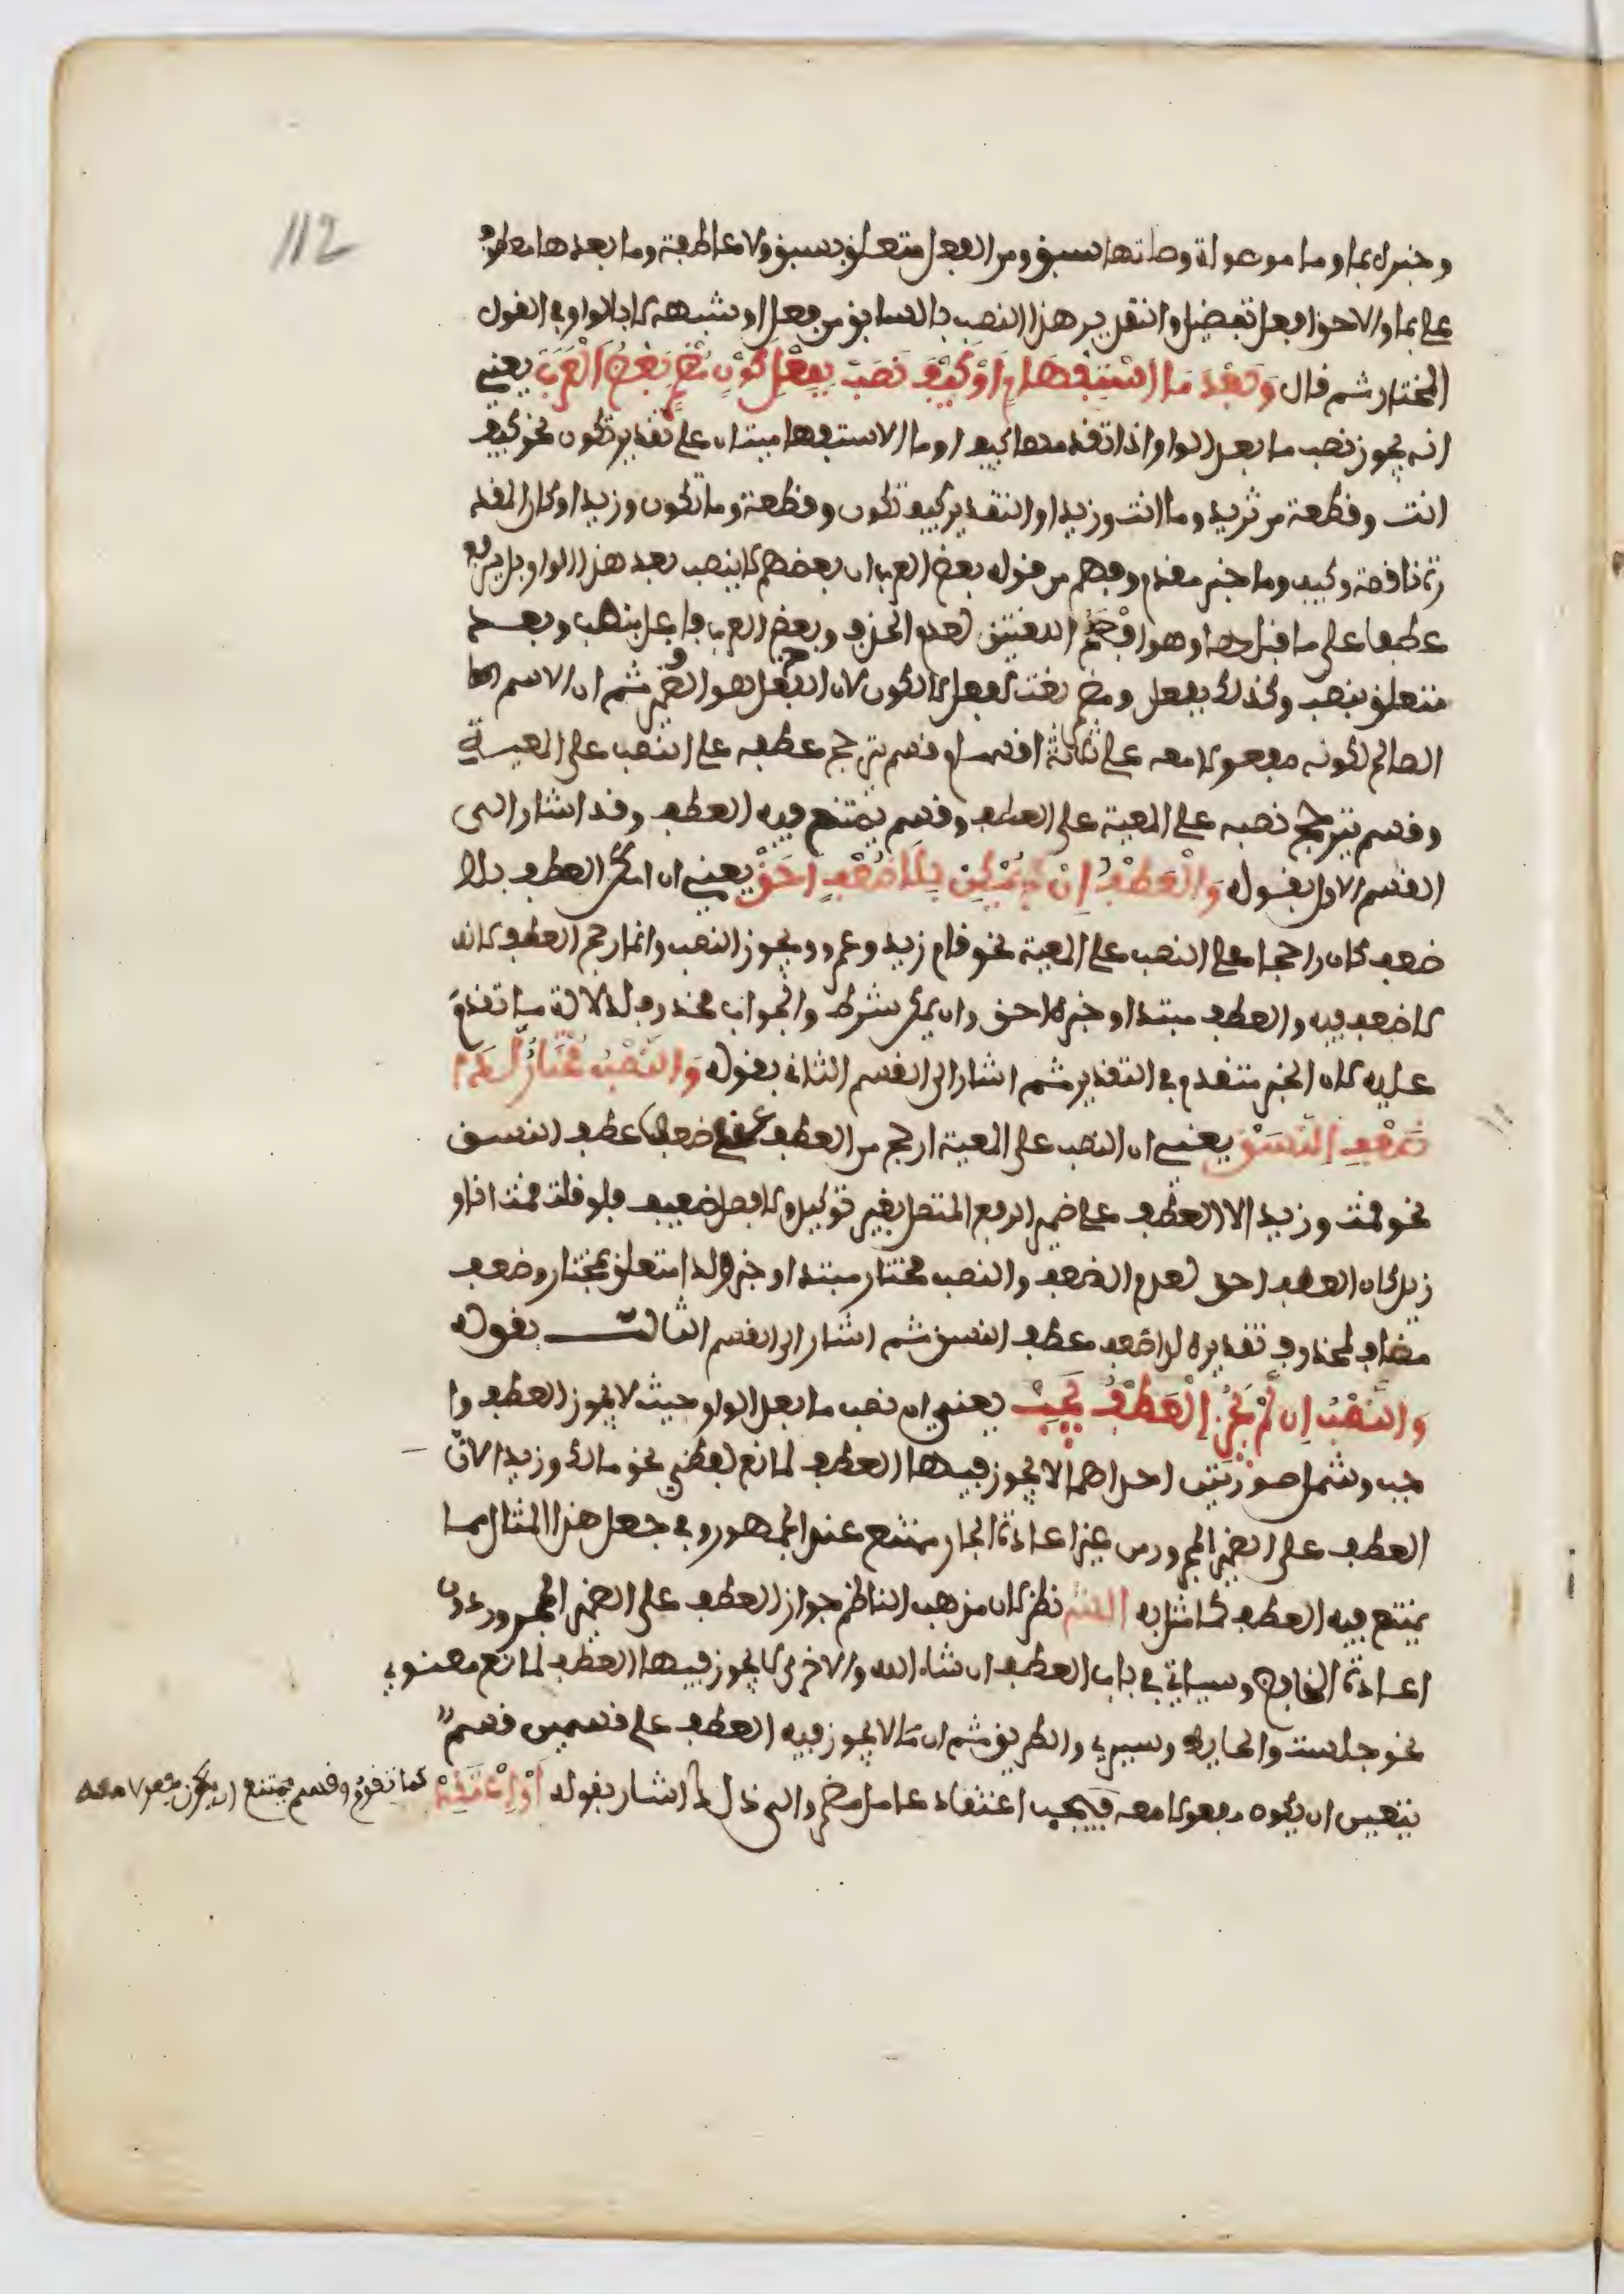 112
وخبره بما وما موصولة وصلتها سبق ومن الفعل متعلق بسبق ولا عاطفة وما بعدها معطوف
على بما والاحق افعل تفضيل والتقدير هذا النصب بالسابق من فعل او شبهه لا بالواو في القول
المختار ثم قال وَبَعْدَ مَا اسْتِفْهَامٍ اَوْ كَيْفَ نَصَبْ بِفِعْلِ كَوْنٍ مُضْمَرٍ بَعْضُ الْعَرَبْ يعني
انه يجوز نصب ما بعد الواو اذا تقدمها كيف او ما الاستفهاميتان على تقدير تكون نحو كيف
انت وقصعة من ثريد وما انت وزيدا والتقدير كيف تكون وقصعة وما تكون وزيدا وكان المقد
رة ناقصة وكيف وما خبر مقدم وفهم من قوله بعض العرب ان بعضهم لا ينصب بعد هذا الواو بل يرفع
عطفا على ما قبلها وهو افصح اللغتين لعدم الحذف وبعض العرب فاعل بنصب وبعد
متعلق بنصب وكذلك بفعل ومضمر نعت لفعل لا لكون لان الفعل هو المضمر ثم ان الاسم
الصالح لكونه مفعولا معه على ثلاثة اقسام قسم يترجح عطفه على النصب على المعية
وقسم يترجح نصبه على المعية على العطف وقسم يمتنع فيه العطف وقد اشار الى
القسم الاول بقوله وَالْعَطْفُ اِنْ يُمْكِنْ بِلَا ضُعْفٍ اَحَقْ يعني ان امكن العطف بلا
ضعف كان راجحا على النصب على المعية نحو قام زيد وعمرو ويجوز النصب وانما رجح العطف لانه
لا ضعف فيه والعطف مبتدا وخبره احق وان يمكن شرط والجواب محذوف لدلالة ما تقدم
عليه لان الخبر متقدم في التقدير ثم اشار الى القسم الثاني بقوله وَالنَّصْبُ مُخْتَارٌ لَدَا
ضَعْفِ النَّسَقْ يعني ان النصب على المعية ارجح من العطف عند ضعف عطف النسق
نحو قمت وزيدا لان العطف على ضمير الرفع المتصل بغير توكيد ولا فصل ضعيف فلو قلت قمت انا و
زيد كان العطف احق لعدم الضعف والنصب مختار مبتدا وخبر ولدا متعلق بمختار وضعف
مضاف لمحذوف تقديره لدا ضعف عطف النسق ثم اشار الى القسم الثالث بقوله
وَالنَّصْبُ اِنْ لَمْ يَجُزِ الْعَطْفُ يَجِبْ يعني ان نصب ما بعد الواو حيث لا يجوز العطف وا
جب وشمل صورتين احداهما لا يجوز فيها العطف لمانع لفظي نحو مالك وزيدا لان
العطف على الضمير المجرور من غير اعادة الجار ممتنع عند الجمهور وفي جعل هذا المثال مما
يمتنع فيه العطف كما مثل به نظر لان مذهب الناظم جواز العطف على الضمير المجرور دون
اعادة الخافض وسياتي في باب العطف ان شاء الله والاخرى لا يجوز فيها العطف لمانع معنوي
نحو جلست والحايط وسيري والطريق ثم ان ما لا يجوز فيه العطف على قسمين قسم
يتعين ان يكون مفعولا معه فيجب اعتقاد عامل مضمر والى ذلك اشار بقوله اَوِ اعْتَقِدْ
كما تقدم وقسم يمتنع ان يكون مفعولا معه